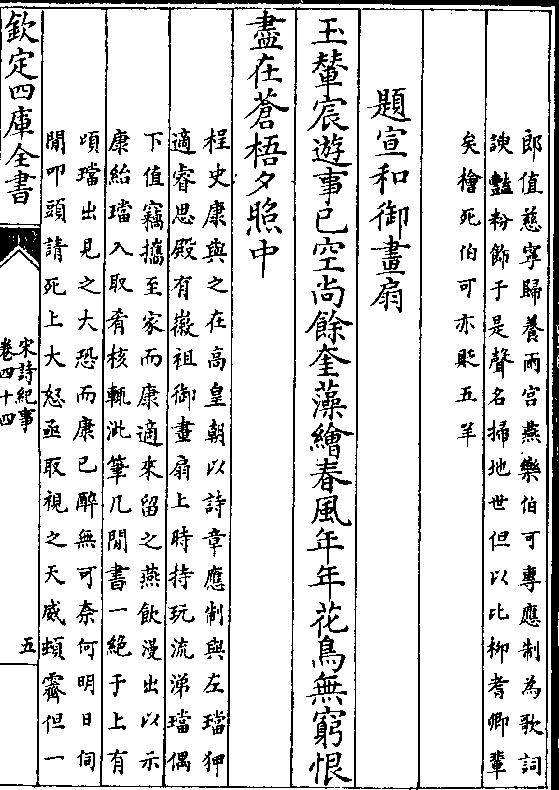 郎值慈寧歸養兩宫燕樂伯可專應制為歌詞
諛豔粉飾于是聲名掃地世但以比柳耆卿輩
矣檜死伯可亦貶五羊
題宣和御畫扇
玉輦宸遊事已空尚餘奎藻繪春風年年花鳥無窮恨
盡在蒼梧夕照中
桯史康與之在高皇朝以詩章應制與左璫狎
適睿思殿有徽祖御畫扇上時持玩流涕璫偶
下值竊攜至家而康適來留之燕飲漫出以示
康紿璫入取肴核輒泚筆几間書一絶于上有
頃璫出見之大恐而康已醉無可奈何明日伺
間叩頭請死上大怒亟取視之天威頓霽但一
欽定四庫全書
宋詩紀事
卷四十四
五